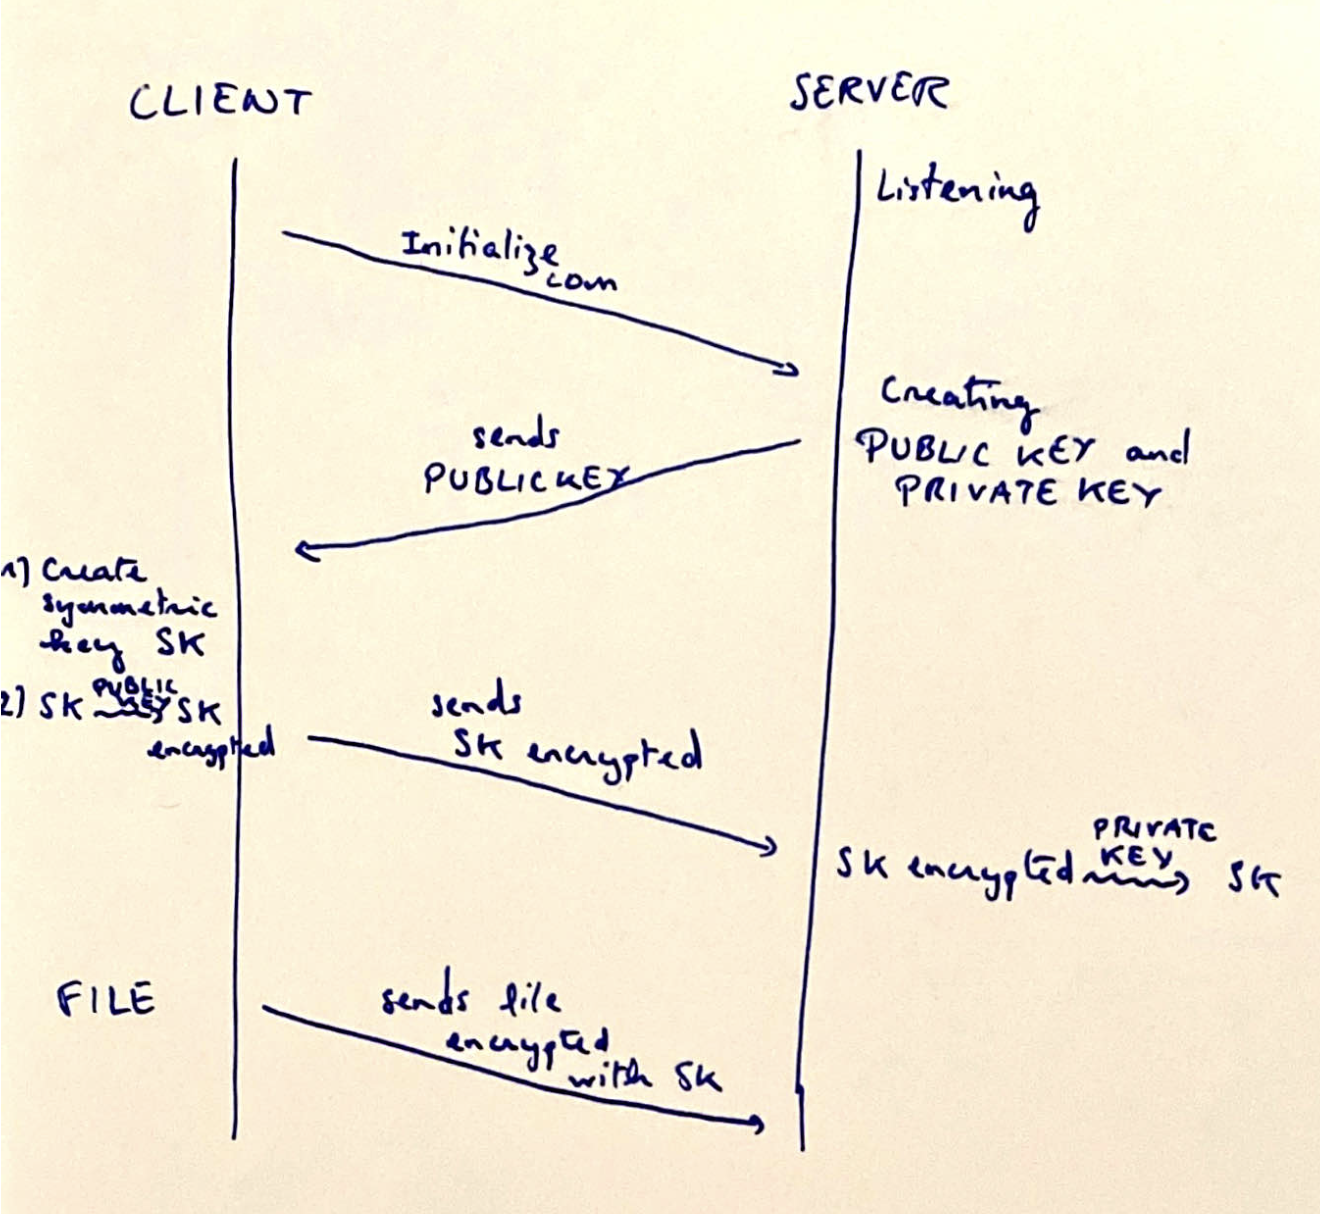 CLIENT
SERVER
Listening
Initialize
com
Creating
PUBLIC KEY and
PRIVATE KEY
sends
PUBLIC KEY
1) Create
symmetric
key SK
2) SK PUBLIC KEY SK
encrypted
sends
SK encrypted
PRIVATE
KEY
SK encrypted SK
FILE
sends file
encrypted
with SK